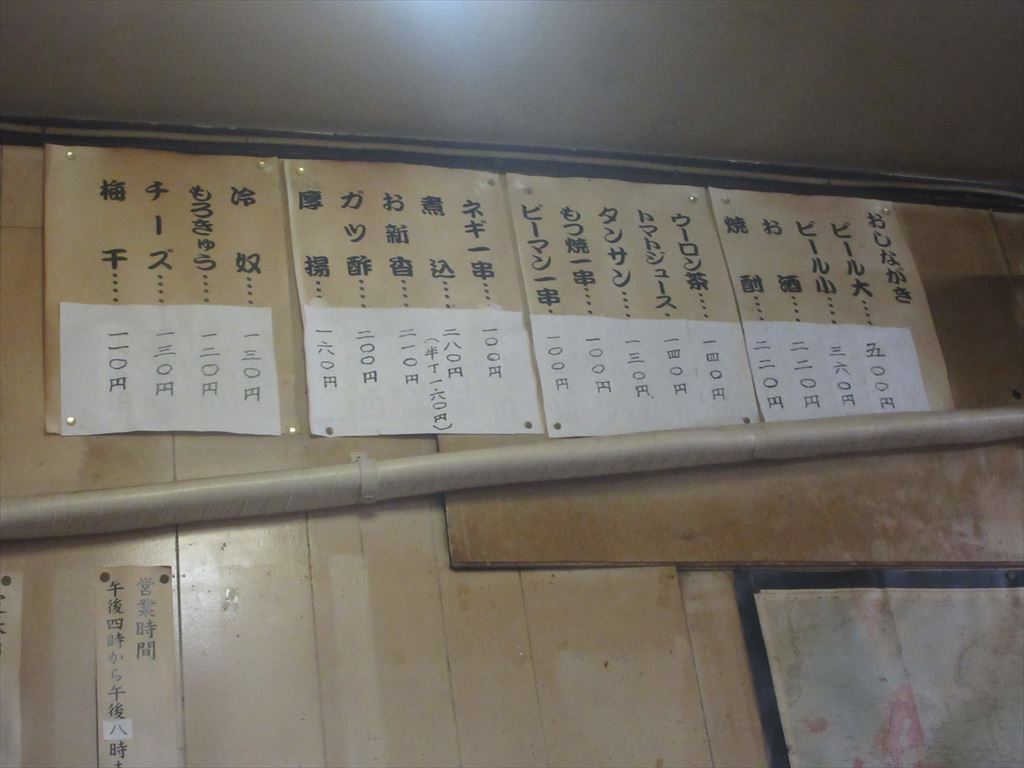 おしながき
ビール大‥‥五〇〇円
ビール小‥‥三六〇円
お酒‥‥二二〇円
焼酎‥‥二二〇円
ウーロン茶‥‥一四〇円
トマトジュース‥‥一四〇円
タンサン‥‥一三〇円
もつ焼一串‥‥一〇〇円
ピーマン一串‥‥一〇〇円
ネギ一串‥‥一〇〇円
煮込‥‥二八〇円
(半丁一六〇円)
お新香‥‥二一〇円
ガツ酢‥‥二〇〇円
厚揚‥‥一六〇円
冷奴‥‥一三〇円
もろきゅう‥‥一二〇円
チーズ‥‥一三〇円
梅干‥‥一一〇円
営業時間
午後四時から午後八時